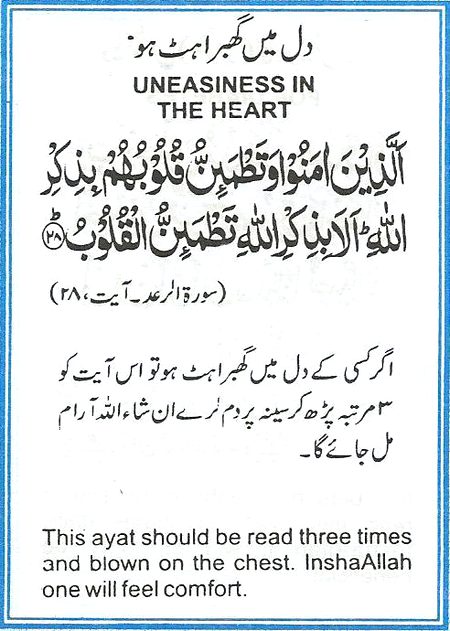 دل میں گھبراہٹ ہو
UNEASINESS IN
THE HEART
اَلَّذِیْنَ اٰمَنُوْا وَتَطْمَئِنُّ قُلُوْبُهُمْ بِذِكْرِ
اللّٰهِ ؕ اَلَا بِذِكْرِ اللّٰهِ تَطْمَئِنُّ الْقُلُوْبُ ﴿۲۸﴾
(سورۃ الرعد۔ آیت، ۲۸)
اگر کسی کے دل میں گھبراہٹ ہو تو اس آیت کو
۳ مرتبہ پڑھ کر سینہ پر دم کرے ان شاء اللہ آرام
مل جائے گا۔
This ayat should be read three times
and blown on the chest. InshaAllah
one will feel comfort.